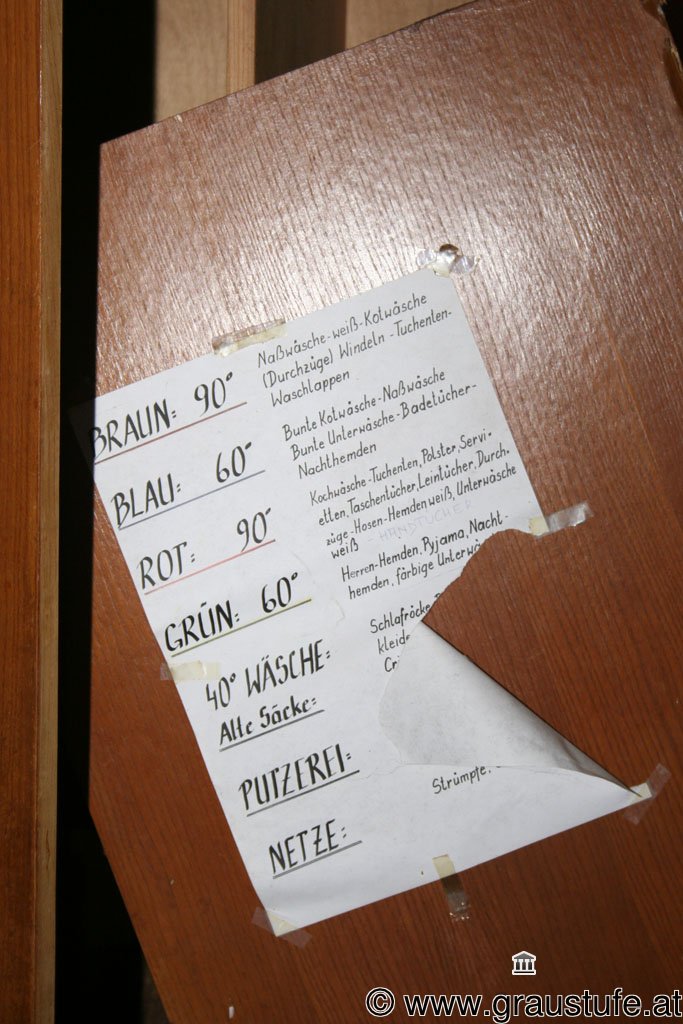 BRAUN: 90°
Naßwäsche-weiß-Kotwäsche
(Durchzüge) Windeln-Tuchenten-
Waschlappen
BLAU: 60°
Bunte Kotwäsche-Naßwäsche
Bunte Unterwäsche-Badetücher-
Nachthemden
ROT: 90°
Kochwäsche-Tuchenten, Polster, Servi-
etten, Taschentücher, Leintücher, Durch.
züge-Hosen-Hemden weiß, Unterwäsche
weiß - HANDTÜCHER
GRÜN: 60°
Herren-Hemden, Pyjama, Nacht-
hemden, färbige
40° WÄSCHE:
Alte Säcke:
Schlafröcke
kleide
PUTZEREI:
NETZE:
Strümpfe.
© www.graustufe.at